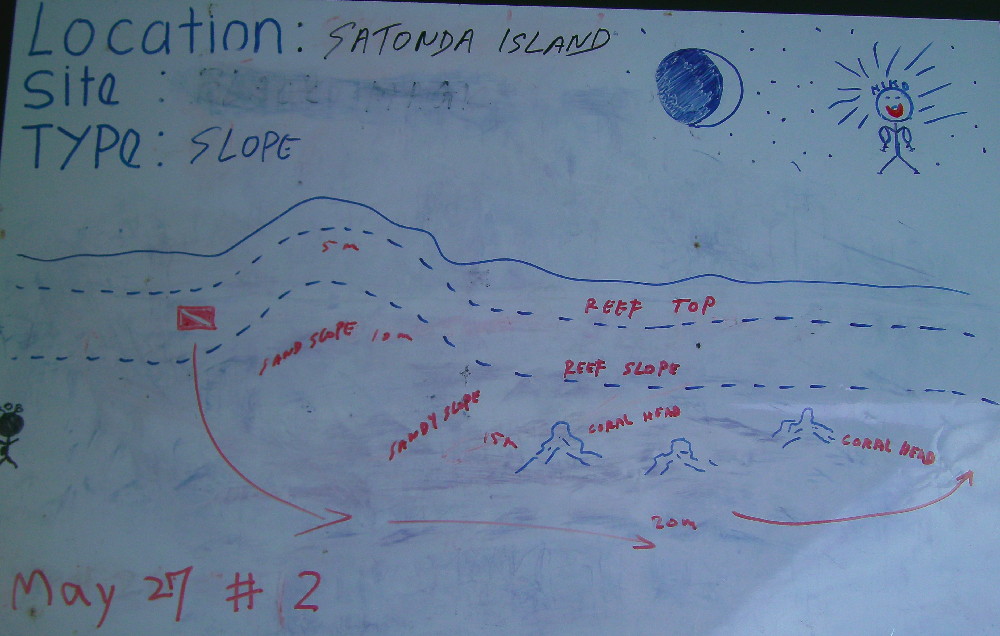 Location: SATONDA ISLAND
Site :
TYPE: SLOPE
5 m
REEF TOP
SAND SLOPE 10m
REEF SLOPE
SANDY SLOPE
15m
CORAL HEAD
CORAL HEAD
20m
May 27 # 2